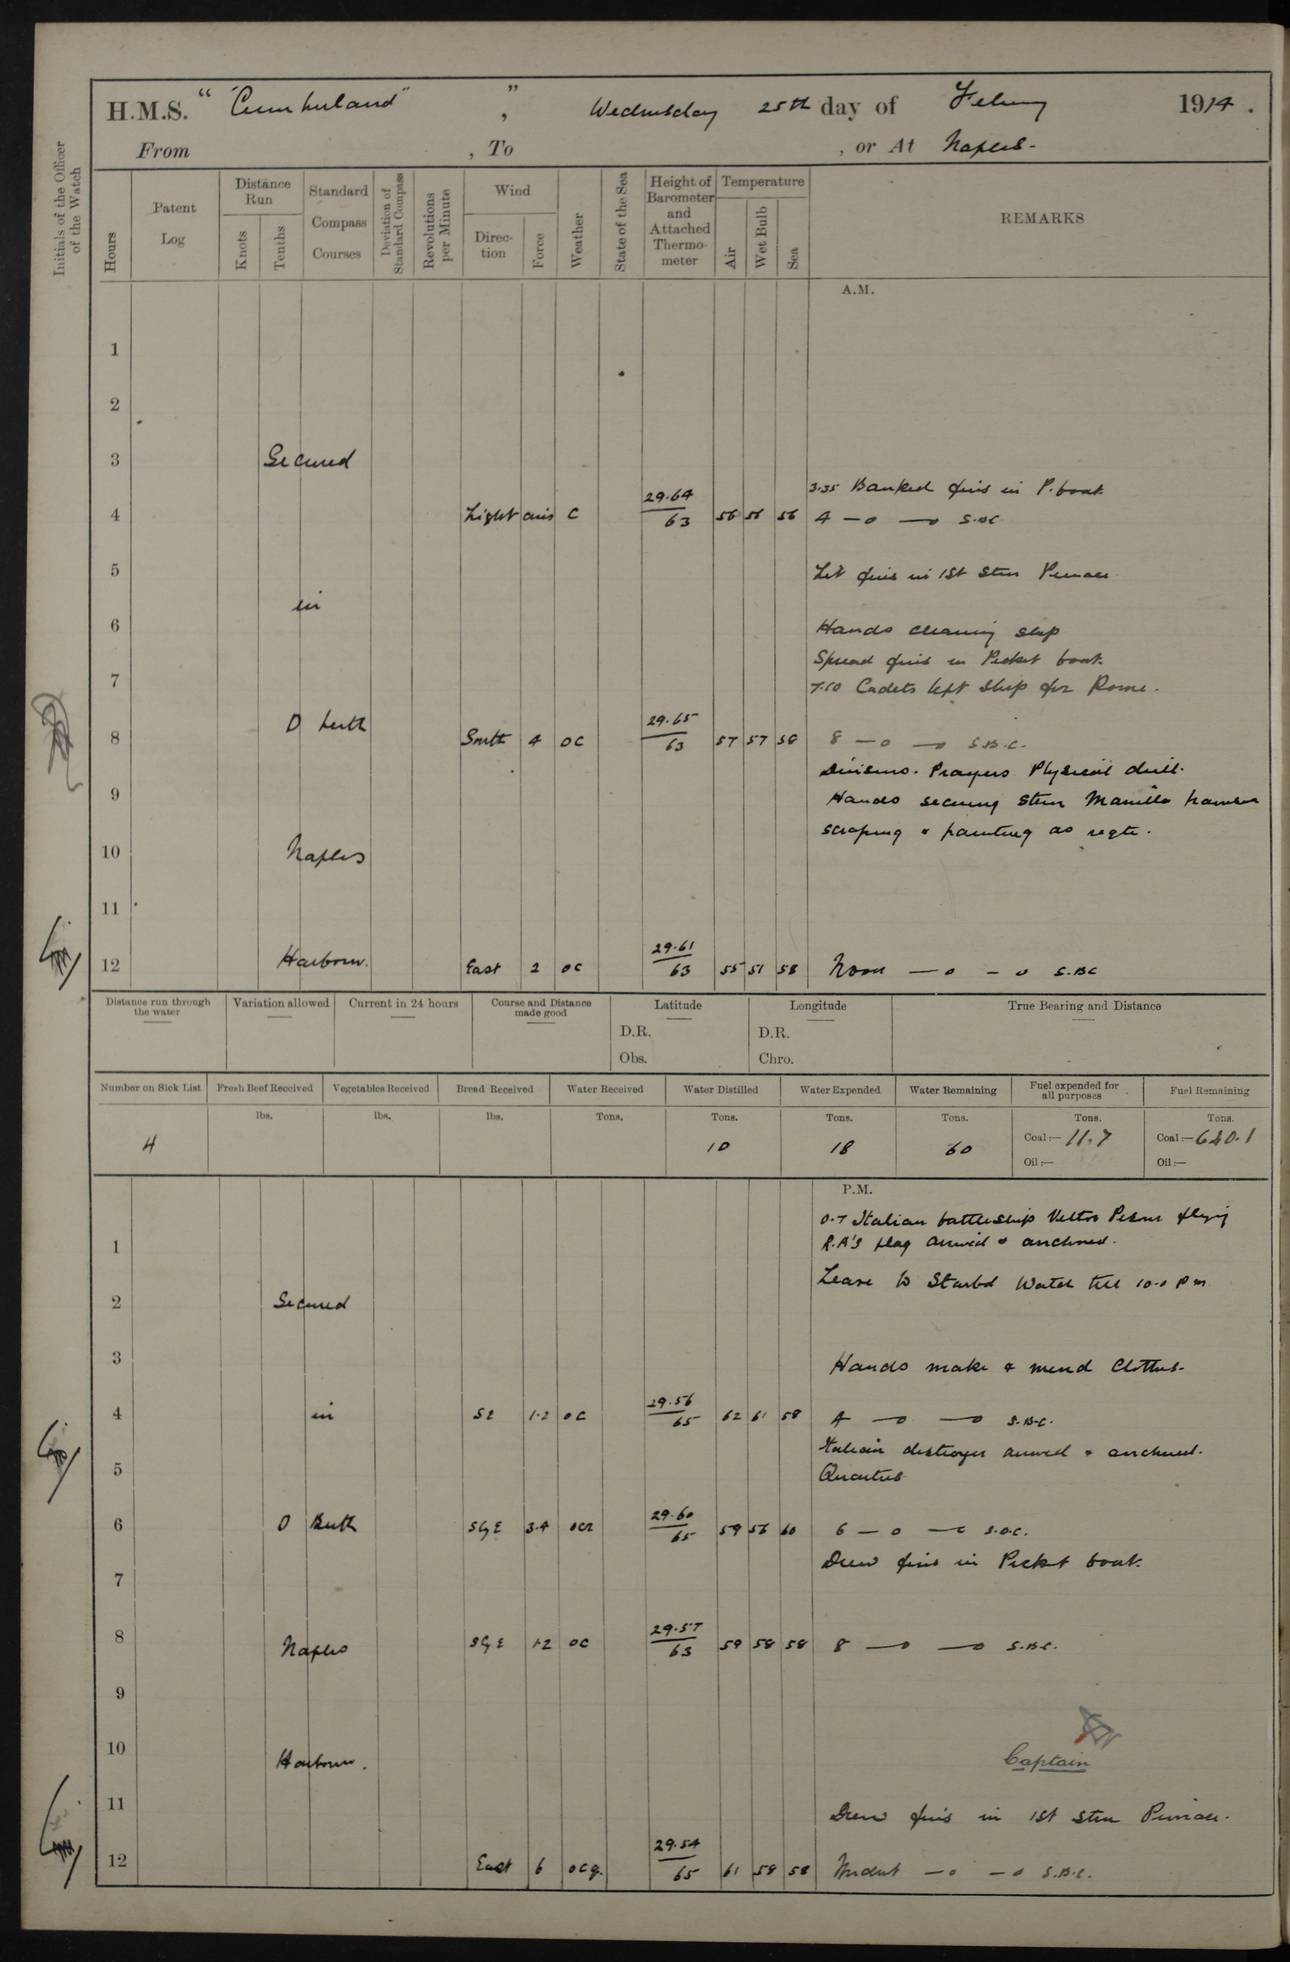 H.M.S. " "Cumberland" ", Wednesday 25th day of Februy 1914.
From , To , or At Naples.
Initials of the Officer of the Watch
Hours
Patent Log
Distance Run
Knots
Tenths
Standard Compass Courses
Deviation of Standard Compass
Revolutions per Minute
Wind
Direction
Force
Weather
State of the Sea
Height of Barometer and Attached Thermometer
Temperature
Air
Wet Bulb
Sea
REMARKS
A.M.
1
2
3 Secured
3.35 Banked fires in P. boat.
4 Light airs c 29.64 63 56 56 56 4 —o —o S.B.C
5 Lit fires in 1st Stm Pinnace
in
6 Hands cleaning ship
Spread fires in Picket boat.
7 7.10 Cadets left ship for Rome.
D berth
8 South 4 oc 29.65 63 57 57 58 8 —o —o S.B.C.
Divisions. Prayers Physical drill.
9 Hands securing Stern Manilla hawser
scraping & painting as reqte.
10 Naples
11
12 Harbour. East 2 oc 29.61 63 55 51 58 Noon —o —o S.BC
Distance run through the water
Variation allowed
Current in 24 hours
Course and Distance made good
Latitude
D.R.
Obs.
Longitude
D.R.
Chro.
True Bearing and Distance
Number on Sick List Fresh Beef Received Vegetables Received Bread Received Water Received Water Distilled Water Expended Water Remaining Fuel expended for all purposes Fuel Remaining
lbs. lbs. lbs. Tons. Tons. Tons. Tons. Tons. Tons.
4 10 18 60 Coal:— 11.7 Coal:— 640.1
Oil:— Oil:—
P.M.
0.7 Italian battleship Vettor Pisani flying
1 R.A's flag arrived & anchored.
Leave to Starbd Watch till 10.0 pm
2 Secured
3 Hands make & mend Clothes.
4 in SE 1.2 oc 29.56 65 62 61 58 4 —o —o S.B.C.
Italian destroyer arrived & anchored.
5 Quarters
6 D Berth SbyE 3.4 ocr 29.60 65 59 56 60 6 —o —o S.B.C.
Drew fires in Picket boat.
7
8 Naples SbyE 1.2 oc 29.57 63 59 58 58 8 —o —o S.B.C.
9
10 Harbour. Captain
11 Drew fires in 1st Stm Pinnace.
12 East 6 ocq. 29.54 65 61 58 58 Midnt —o —o S.B.C.